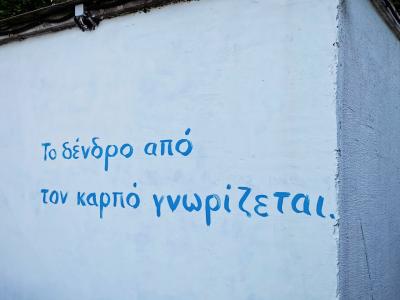 Το δένδρο από
τον καρπό γνωρίζεται.